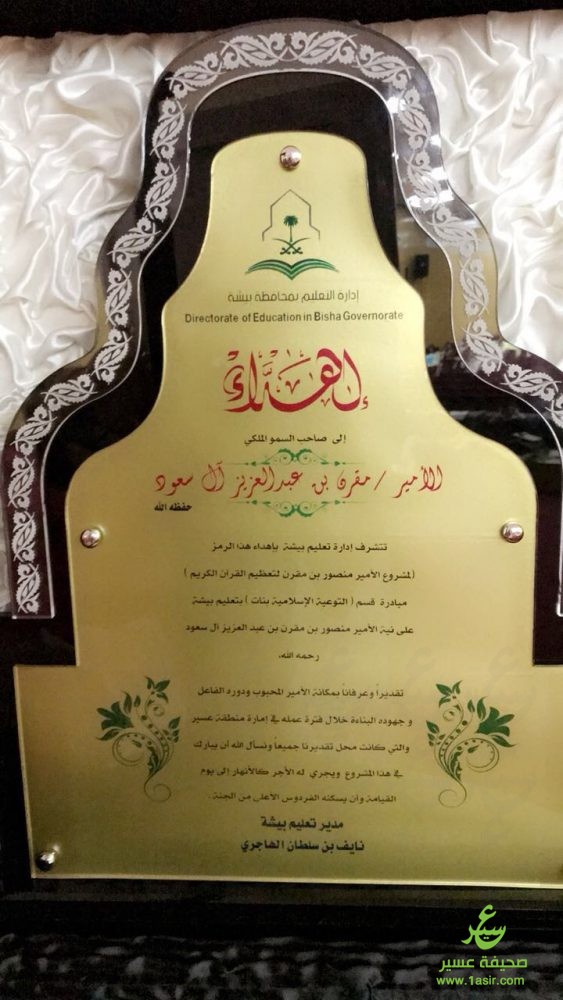 إدارة التعليم بمحافظة بيشة
Directorate of Education in Bisha Governorate
إهداء
إلى صاحب السمو الملكي
الأمير / مقرن بن عبدالعزيز آل سعود
حفظه الله
تتشرف إدارة تعليم بيشة بإهداء هذا الرمز
(لمشروع الأمير منصور بن مقرن لتعظيم القرآن الكريم)
مبادرة قسم (التوعية الإسلامية بنات) بتعليم بيشة
على نية الأمير منصور بن مقرن بن عبد العزيز آل سعود
رحمه الله،
تقديراً وعرفاناً بمكانة الأمير المحبوب ودوره الفاعل
و جهوده البناءة خلال فترة عمله في إمارة منطقة عسير
والتي كانت محل تقديرنا جميعاً ونسأل الله أن يبارك
في هذا المشروع ويجري له الأجر كالأنهار إلى يوم
القيامة وأن يسكنه الفردوس الأعلى من الجنة .
مدير تعليم بيشة
نايف بن سلطان الهاجري
عسير
صحيفة عسير
www.1asir.com